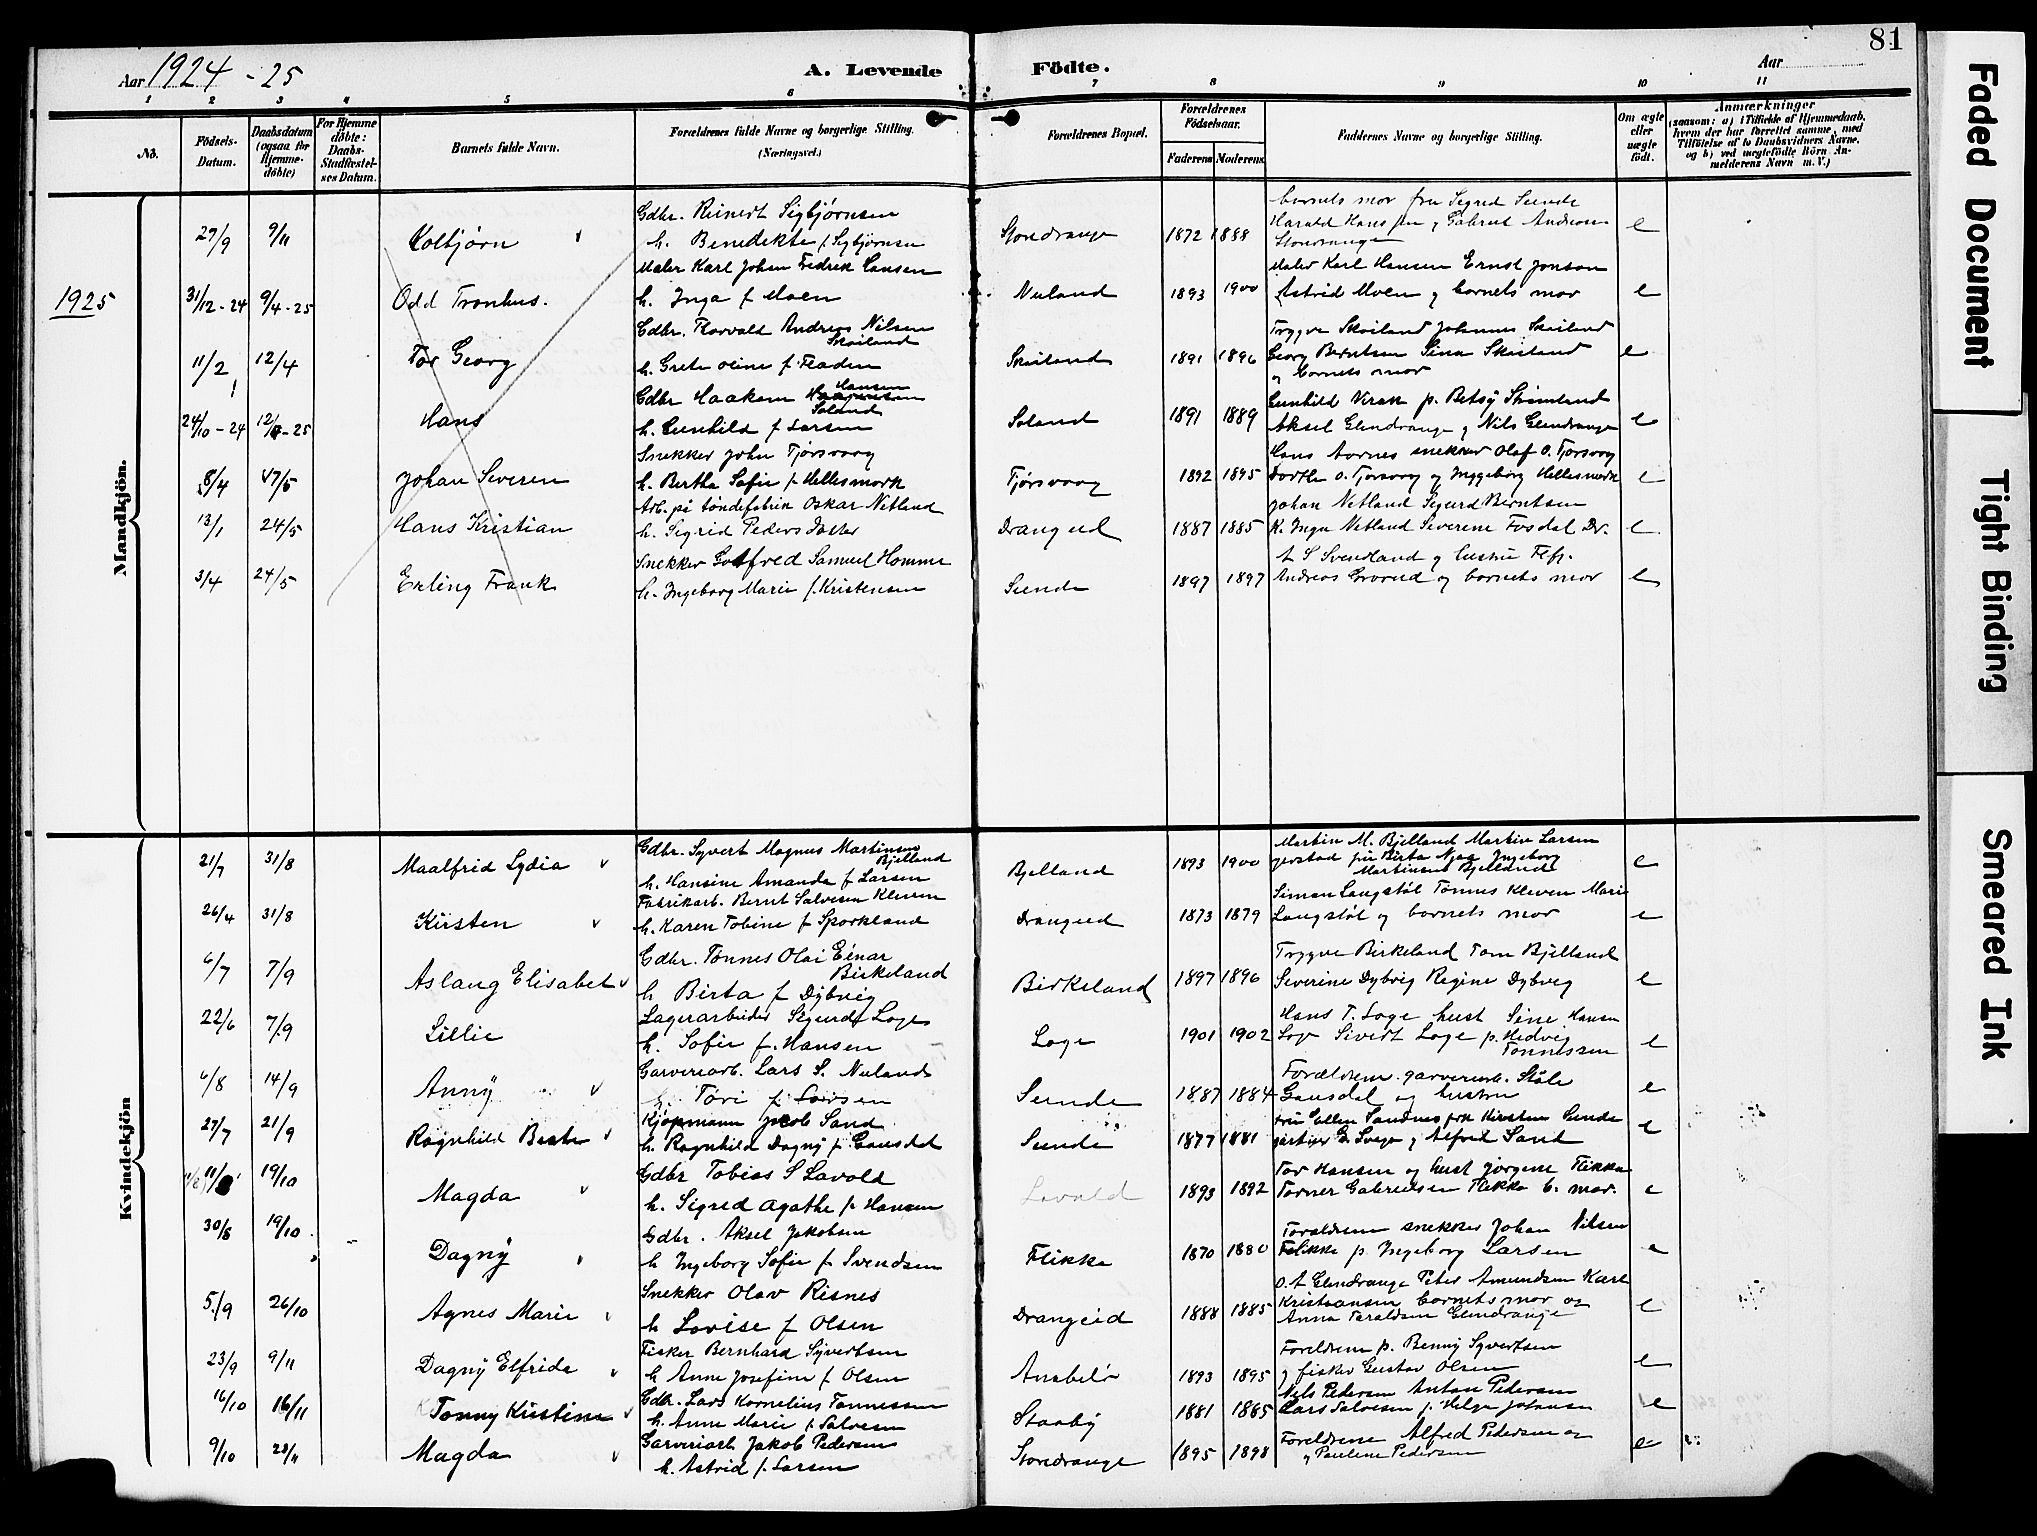 81
Aar 1924-25
A. Levende Födte.
Aar
1 2 3 4 5 6 7 8 9 10 11
No.
Födsels-Datum.
Daabsdatum (ogsaa for Hjemme-döbte)
For Hjemme döbte: Daabs-Stadfæstel-ses Datum.
Barnets fulde Navn.
Forældrenes fulde Navne og borgerlige Stilling. (Næringsvei.)
Forældrenes Bopæl.
Forældrenes Födselsaar.
Faderens Moderens
Faddernes Navne og borgerlige Stilling.
Om ægte eller uægte födt.
Anmærkninger
(saasom: a) i Tilfælde af Hjemmedaab, hvem der har forrettet samme, med Tilföielse af to Daabsvidners Navne, og b) ved uægtefödte Börn An-melderens Navn m. V.)
Mandkjön.
27/9 9/11 Kolbjørn Gdbr. Reinert Sigbjørnsen
h. Benedikte f. Sigbjørnsen Storedrange 1872 1888 barnets mor fru Sigred Sunde
Harald Hansen og Gabriel Andreas
Storedrange e
1925 31/12-24 9/4-25 Odd Tronhus. Maler Karl Johan Fredrik Hansen
h. Inga f Moen Nuland 1893 1900 Maler Karl Hansen Ernst Jonson
Astrid Moen og barnets mor e
11/2 12/4 Tor Georg Gdbr. Thorvald Andreas Nilsen
Skoiland
h. Grete Oline f. Fladen Skoiland 1891 1896 Trygve Skoiland Johannes Skoiland
Georg Berntsen Sina Skoiland
og barnets mor e
24/10-24 12/4-25 Hans Gdbr Haakon Hansen
Soland
h. Gunhild f Larsen Soland 1891 1889 Gunhild Virak p. Betsy Strømland
Aksel Glendrange og Nils Glendrange e
8/4 17/5 Johan Severen Snekker John Tjørsvaag
h. Bertha Sofie f Hellesmark Tjørsvaag 1892 1895 Hans Aarnes snekker Olaf O. Tjorsvag
Dorthe O. Tjorsvag og Inggeborg Hellesmark e
13/1 24/5 Hans Kristian Arb. på tøndefabrik Oskar Netland
h. Sigrid Pedersdatter Drangeid 1887 1885 Johan Netland Sigurd Berntsen
K. Inga Netland Severine Fosdal Dr. e
3/4 24/5 Erling Frank Snekker Gotfred Samuel Homme
h. Ingeborg Marie f. Kristensen Sunde 1897 1897 A S Svendland og hustru Flfj.
Andreas Grøsud og barnets mor e
Kvindekjön
21/7 31/8 Maalfrid Lydia Gdbr. Syvert Magnus Martinsen
Bjelland
h. Hansine Amanda f Larsen Bjelland 1893 1900 Martin M. Bjelland Martin Larsen
gerstad fru Birta Njaa Ingeborg
Martinsen Bjelland e
26/4 31/8 Kirsten Fabrikarb. Bernt Salvesen Kleven
h. Karen Tobine f Sporkland Drangeid 1873 1879 Simon Langstøl Tønnes Kleven Marie
Langstøl og barnets mor e
6/7 7/9 Aslaug Elisabet Gdbr. Tønnes Olai Einar
Birkeland
h Birta f Dybvig Birkeland 1897 1896 Trygve Birkeland Tom Bjelland
Severine Dybvig Regine Dybvig e
22/6 7/9 Lillie Lagerarbeider Sigurd Loge
h. Sofie f. Hansen Loge 1901 1902 Hans T. Loge hust Sine Hansen
Loge Sivert Loge p. Hedvig
Tonnessen e
6/8 14/9 Anny Garveriarb. Lars S. Nuland
h. Tori f Larsen Sunde 1887 1884 Foreldrene garveriarb. Ståle
Gausdal og hustru e
27/7 21/9 Ragnhild Beate Kjøpmann Jacob Sand
h. Ragnhild Dagny f. Gausdal Sunde 1877 1881 fru Ellen Sandnes frk Kirsten Sunde
gartner G. Svege og Alfred Sand e
11/8 19/10 Magda Gdbr Tobias S Lavold
h. Sigred Agathe f Hansen Lavold 1893 1892 Tor Hansen og hust Jørgine Flikka
Torner Gabrielsen Flikka b. mor. e
30/8 19/10 Dagny Gdbr. Aksel Jakobsen
h Ingeborg Sofie f Svendsen Flikke 1870 1880 Foreldrene snekker Johan Nilsen
Flikke p. Ingeborg Larsen e
5/9 26/10 Agnes Marie Snekker Olav Risnes
h Lovise f Olsen Drangeid 1888 1885 O. A Glendrange Peter Amundsen Karl
Kristiansen barnets mor og
Anna Taraldsen Glendrange e
23/9 9/11 Dagny Elfrida Fisker Bernhard Syvertsen
h Anne Josefine f Olsen Anabelø 1893 1895 Foreldrene p. Benny Syvertsen
og fisker Gustav Olsen e
16/10 16/11 Tonny Kristine Gdbr. Lars Kornelius Tønnessen
h. Anne Marie f Salvesen Staaby 1881 1885 Nils Pedersen Anton Pedersen
Lars Salvesen p. Helga Johansen e
9/10 23/11 Magda Garveriarb Jakob Pedersen
h. Astrid f. Larsen Storedrange 1895 1898 Foreldrene Alfred Pedersen og
Pauline Pedersen e
Faded Document
Tight Binding
Smeared Ink